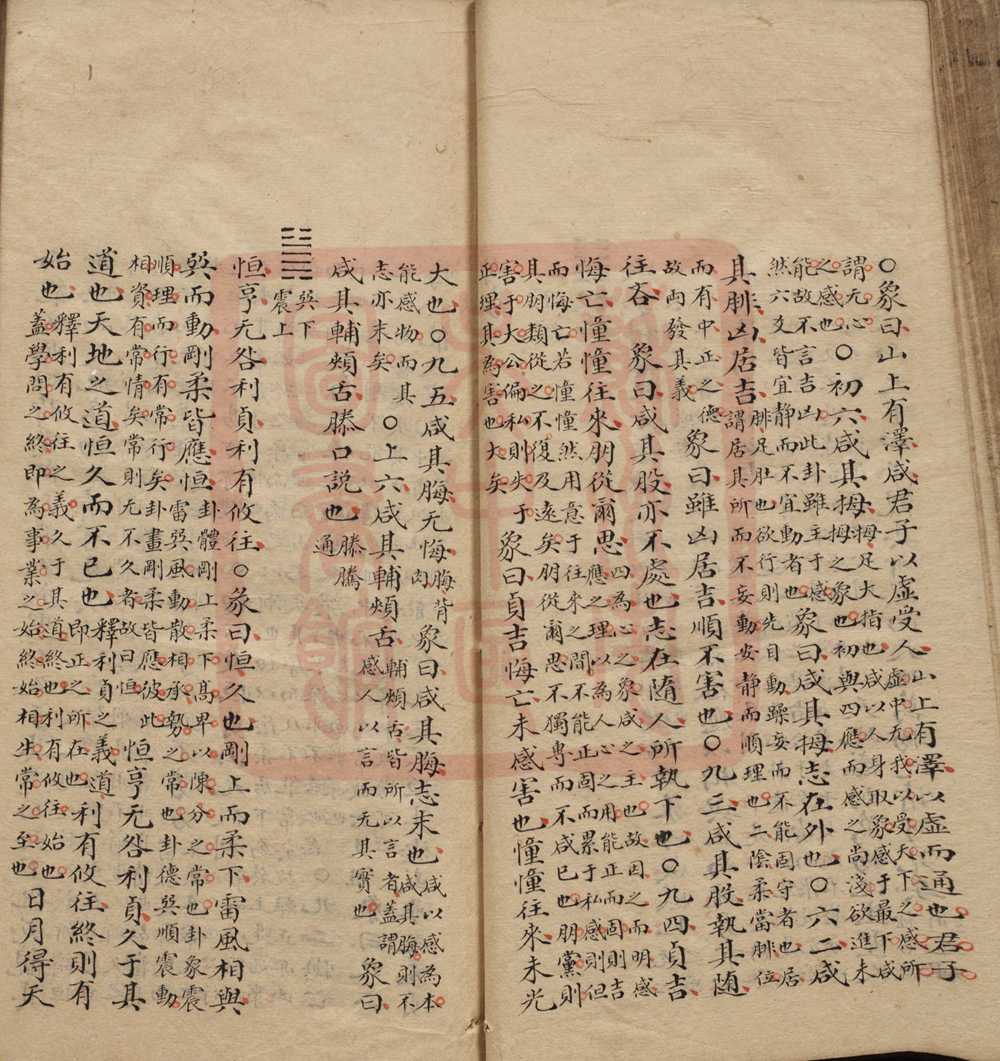 ○象曰山上有澤咸君子以虛受人山上有澤以虛而通也君子
虛中无我以受天下之感所
謂无心
之感也○初六咸其拇拇足大指也咸以人身取象感于最下咸
拇之象也初與四應而感之尚淺欲進未
能故不言吉凶此卦雖主于感
然六爻皆宜静而不宜動者也象曰咸其拇志在外也○六二咸
其腓凶居吉腓足肚也欲行則先自動躁妄而不能固守者也居
謂居其所而不妄動安静而順理也二陰柔當腓位
而有中正之德
故兩發其義象曰雖凶居吉順不害也○九三咸其股執其随
往吝象曰咸其股亦不處也志在随人所執下也○九四貞吉
悔亡憧憧往來朋從爾思四為心之象咸之主也故因之而明感
應之理以為人心之用能正而固則吉
而悔亡若憧憧然用意于往來之間不能正固而累于私感則但
其朋類從之不復及遠矣朋從爾思不獨專而不咸已也朋黨則
害于大公偏私則失于
正理其為害也大矣象曰貞吉悔亡未感害也憧憧往來未光
大也○九五咸其脢无悔脢背
肉象曰咸其脢志末也咸以感為本
咸其脢則不
能感物而其
志亦末矣○上六咸其輔頰舌輔頰舌皆所以言者蓋謂
感人以言而无其實也象曰
咸其輔頰舌滕口說也滕騰
通
巽下
震上
恒亨无咎利貞利有攸往○彖曰恒久也剛上而柔下雷風相與
巽而動剛柔皆應恒卦體剛上柔下高卑以陳分之常也卦象震
雷巽風動散相承勢之常也卦德巽順震動
順理而行有常行矣卦畫剛柔皆應彼此
相資有常情矣常則无不久者故曰恒恒亨无咎利貞久于其
道也天地之道恒久而不已也釋利貞之義道
即正之所在也利有攸往終則有
始也釋利有攸往之義久于其道終也利有攸往始也
蓋學問之終即為事業之始終始相生常之至也日月得天